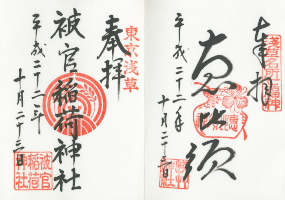 浅草名所七福神
奉拝
恵比須
平成二十二年
十月二十三日
東京浅草
奉拝
被官稲荷神社
平成二十二年
十月二十三日
被官
稲荷
神社